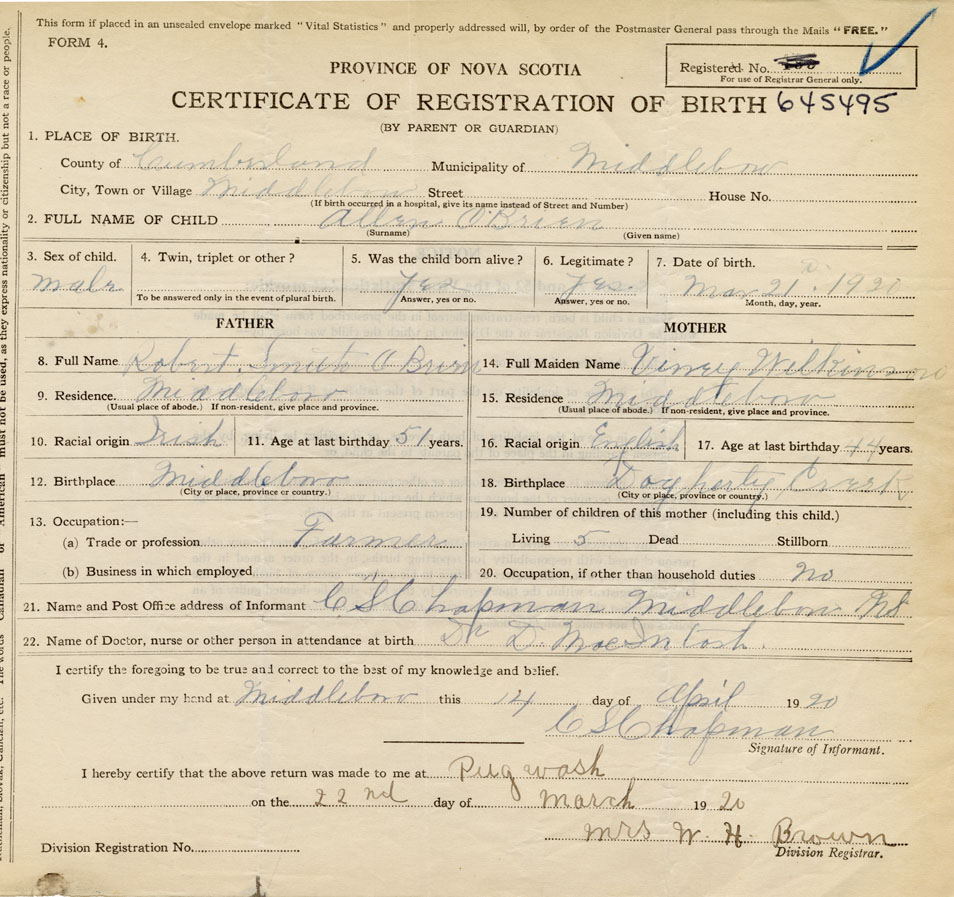 This form if placed in an unsealed envelope marked "Vital Statistics" and properly addressed will, by order of the Postmaster General pass through the Mails "FREE."
FORM 4.
Registered No.
For use of Registrar General only.
PROVINCE OF NOVA SCOTIA
CERTIFICATE OF REGISTRATION OF BIRTH 645495
(BY PARENT OR GUARDIAN)
1. PLACE OF BIRTH.
County of Cumberland Municipality of Middleboro
City, Town or Village Middleboro Street House No.
(If birth occurred in a hospital, give its name instead of Street and Number)
2. FULL NAME OF CHILD Allen O'Brien
(Surname) (Given name)
3. Sex of child. 4. Twin, triplet or other ? 5. Was the child born alive ? 6. Legitimate ? 7. Date of birth.
male Yes Yes. Mar 21. 1920
To be answered only in the event of plural birth. Answer, yes or no. Answer, yes or no. Month, day, year.
FATHER MOTHER
8. Full Name Robert Smith O'Brien 14. Full Maiden Name Viney Wilkinson
9. Residence. Middleboro 15. Residence Middleboro
(Usual place of abode.) If non-resident, give place and province. (Usual place of abode.) If non-resident, give place and province.
10. Racial origin Irish 11. Age at last birthday 51 years. 16. Racial origin English 17. Age at last birthday 44 years.
12. Birthplace Middleboro 18. Birthplace Dogherty Creek
(City or place, province or country.) (City or place, province or country.)
13. Occupation:— 19. Number of children of this mother (including this child.)
(a) Trade or profession Farmer Living 5 Dead Stillborn
(b) Business in which employed 20. Occupation, if other than household duties no
21. Name and Post Office address of Informant C S Chapman Middleboro NS
22. Name of Doctor, nurse or other person in attendance at birth Dr D. MacIntosh.
I certify the foregoing to be true and correct to the best of my knowledge and belief.
Given under my hand at Middleboro this 14 day of April 1920
C S Chapman
Signature of Informant.
I hereby certify that the above return was made to me at Pugwash
on the 22nd day of March 1920
Mrs W. H. Brown
Division Registration No. Division Registrar.
must not be used, as they express nationality or citizenship but not a race or people.